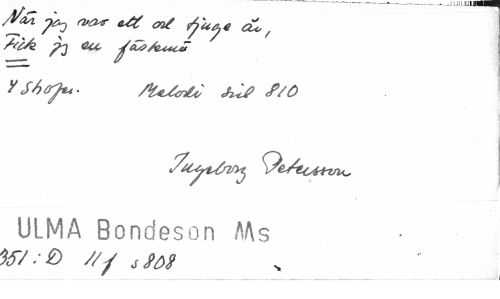 När jag var ett och tjuge år,
Fick jg en fästemö
4 Strofer. Melodi sid 810
Ingeborg Petersson
ULMA Bondeson Ms
351:D II f s 808